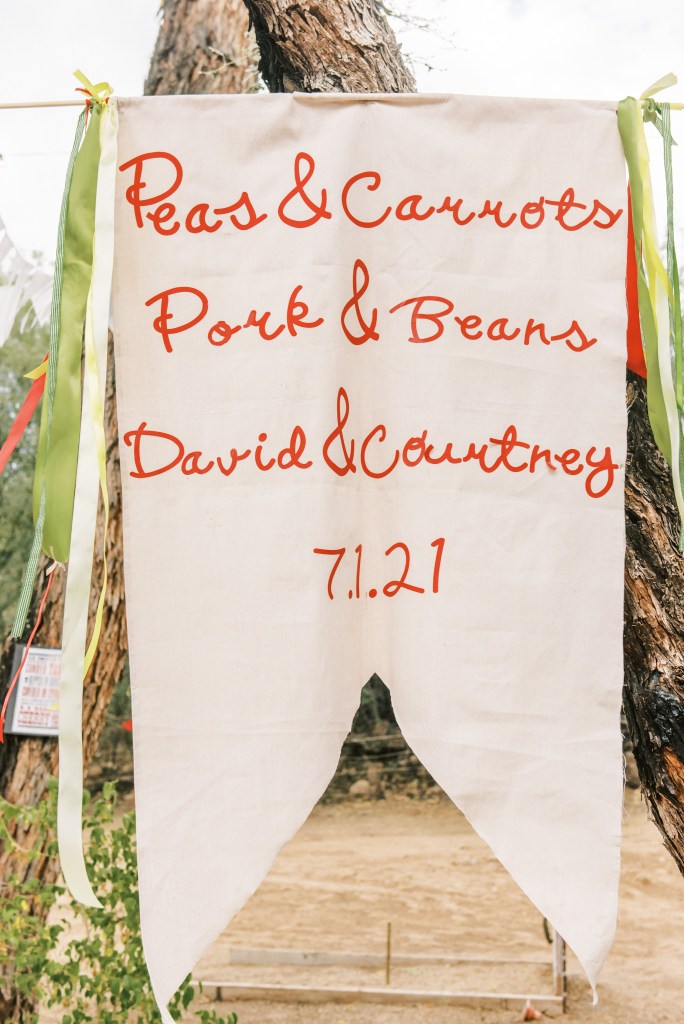 Peas & Carrots
Pork & Beans
David & Courtney
7.1.21